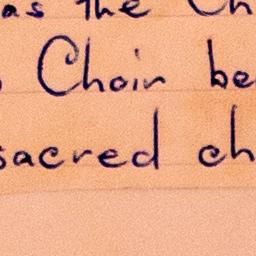 as the Ch
Choir be
sacred ch